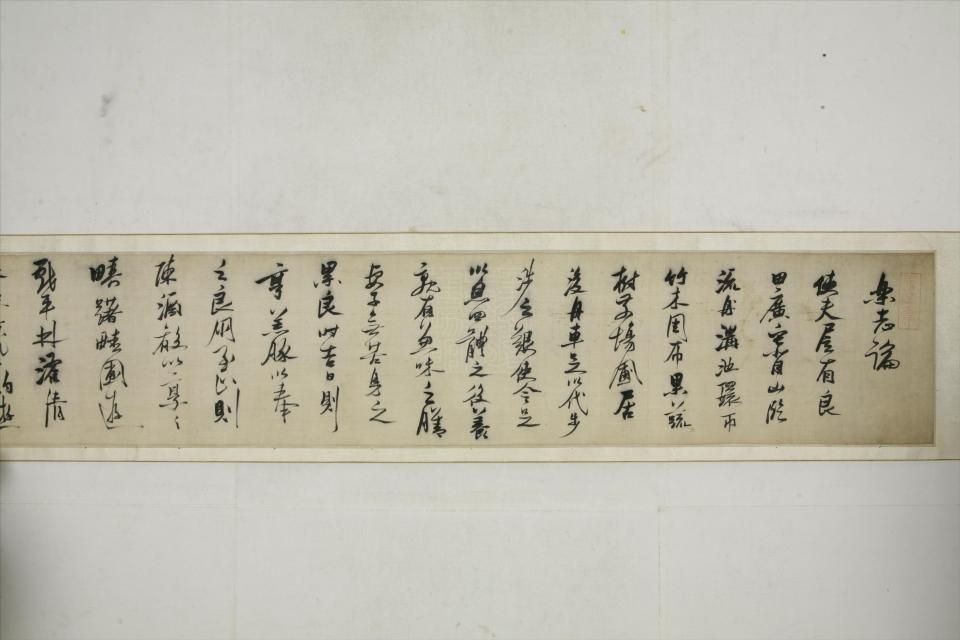 樂志論
使夫居有良
田廣宅背山臨
流舟溝池環帀
竹木周布果蔬
樹前場圃居
後舟車足以代步
涉之艱使令足
以息四體之役養
親有兼味之膳
妻子無苦身之
累良時吉日則
烹羔豚以奉
之良朋至止則
陳酒肴以娛之
躊躇畦圃遊
戲平林濯清